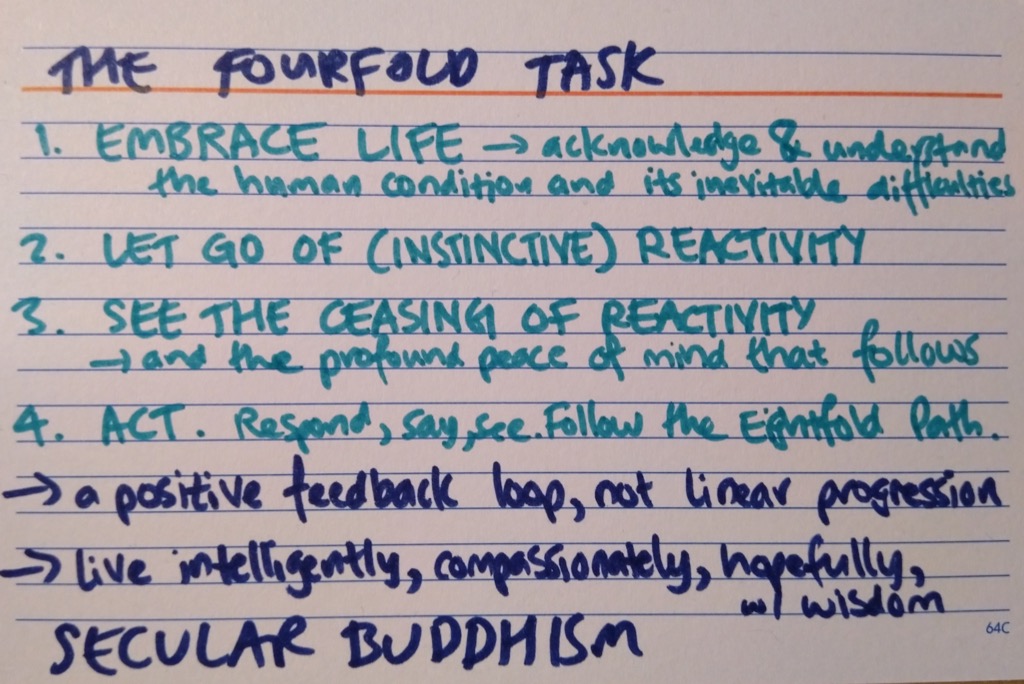 THE FOURFOLD TASK
1. EMBRACE LIFE → acknowledge & understand
the human condition and its inevitable difficulties
2. LET GO OF (INSTINCTIVE) REACTIVITY
3. SEE THE CEASING OF REACTIVITY
→ and the profound peace of mind that follows
4. ACT. Respond, say, see. Follow the Eightfold Path.
→ a positive feedback loop, not linear progression
→ live intelligently, compassionately, hopefully,
w/ wisdom
64C
SECULAR BUDDHISM